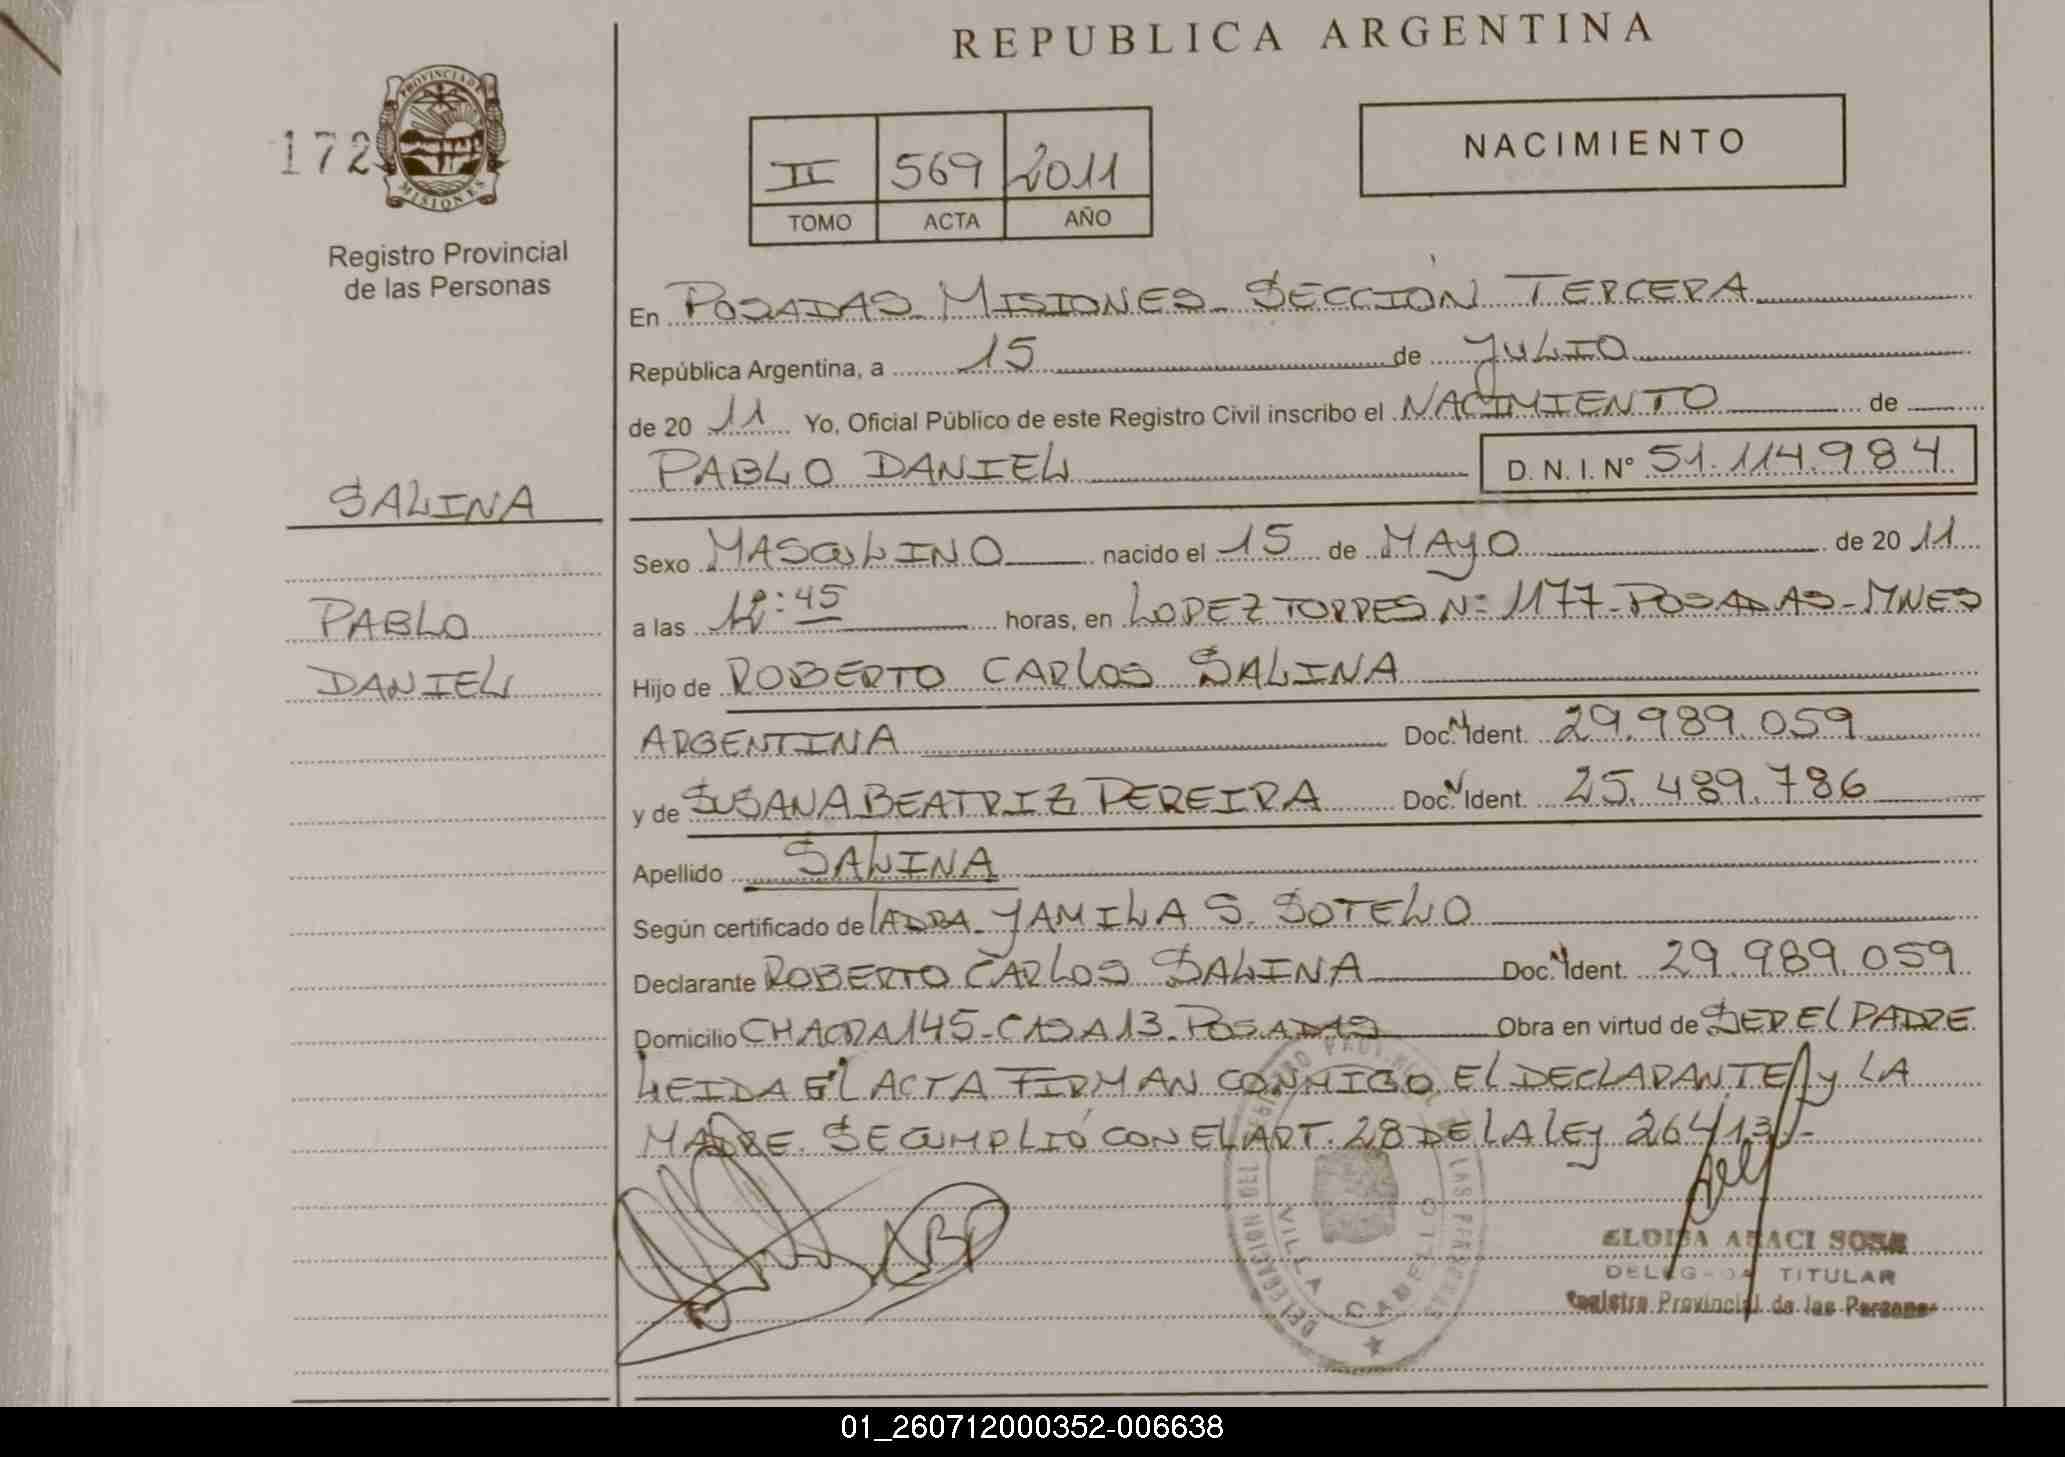 REPUBLICA ARGENTINA
172
PROVINCIA DE MISIONES
Registro Provincial
de las Personas
II 569 2011
TOMO ACTA AÑO
NACIMIENTO
En POSADAS MISIONES - SECCIÓN TERCERA
República Argentina, a 15 de JULIO
de 20 11 Yo, Oficial Público de este Registro Civil inscribo el NACIMIENTO de
PABLO DANIEL D. N. I. Nº 51.114.984
SALINA
PABLO
DANIEL
Sexo MASCULINO nacido el 15 de MAYO de 20 11
a las 12:45 horas, en LOPEZ TORRES Nº 1177 - POSADAS - MNES
Hijo de ROBERTO CARLOS SALINA
ARGENTINA Doc. N Ident. 29.989.059
y de SUSANA BEATRIZ PEREIRA Doc. N Ident. 25.489.786
Apellido SALINA
Según certificado de LA DRA. YAMILA S. SOTELO
Declarante ROBERTO CARLOS SALINA Doc. N Ident. 29.989.059
Domicilio CHACRA 145 - CASA 13 - POSADAS Obra en virtud de SER EL PADRE
LEIDA EL ACTA FIRMAN CONMIGO EL DECLARANTE y LA
MADRE. SE CUMPLIÓ CON EL ART. 28 DE LA LEY 26413.-
DELEGACION DEL REGISTRO PROVINCIAL DE LAS PERSONAS
VILLA CABELLO
ELOISA ARACI SOSA
DELEGADA TITULAR
Registro Provincial de las Personas
01_260712000352-006638